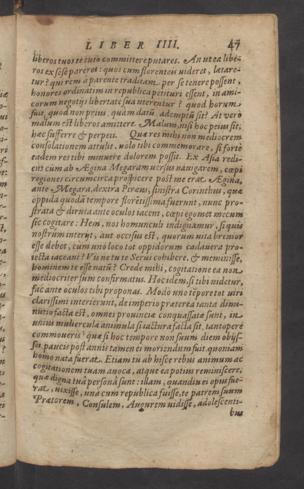 LIBER IIII. 47
liberos tuos te tuto committere putares. An ut ea libe-
ros ex sese pareret: quos cum florenteis uideret, lætare-
tur? qui rem à parente traditam per se tenere possent,
honores ordinatim in republica petituri essent, in ami-
corum negotijs libertate sua uterentur? quod horum
fuit, quod non prius, quàm datũ, ademptũ sit? At uero
malum est liberos amittere. Malum, nisi hoc peius sit,
hæc sufferre & perpeti. Quæ res mihi non mediocrem
consolationem attulit, uolo tibi commemorare, si fortè
eadem res tibi minuere dolorem possit. Ex Asia redi-
ens cum ab Aegina Megaram uersus nauigarem, cœpi
regiones circumcirca prospicere. post me erat Aegina,
ante Megara, dextra Pereus, sinistra Corinthus, quæ
oppida quodã tempore florẽtissima fuerunt, nunc pro-
strata & diruta ante oculos iacent, cœpi egomet mecum
sic cogitare: Hem, nos homunculi indignamur, si quis
nostrum interijt, aut occisus est, quorum uita breuior
esse debet, cùm uno loco tot oppidorum cadauera pro-
iecta iaceant? Vis ne tu te Serui cohibere, & meminisse,
hominem te esse natũ? Crede mihi, cogitatione ea non
mediocriter sum confirmatus. Hoc idem, si tibi uidetur,
fac ante oculos tibi proponas. Modò uno tẽpore tot uiri
clarissimi interierunt, de imperio præterea tanta dimi-
nutio facta est, omnes prouinciæ conquassatæ sunt, in
unius mulierculæ animula si iactura facta sit, tantopere
commoueris? quæ si hoc tempore non suum diem obijs-
set, paucis post annis tamen ei moriendum fuit, quoniam
homo nata fuerat. Etiam tu ab hisce rebus animum ac
cogitationem tuam auoca, atque ea potius reminiscere,
quæ digna tua personã sunt: illam, quandiu ei opus fue-
rat, uixisse, una cum republica fuisse, te patrem suum
Prætorem, Consulem, Augurem uidisse, adolescenti-
bus